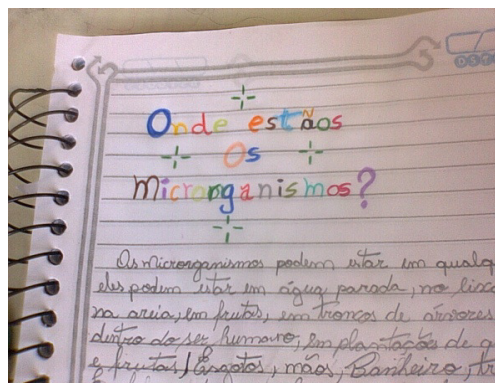 Onde estãos
Os
microrganismos?
Os microrganismos podem estar em qualq
eles podem estar em água parada, no lixo
na areia, em frutas, em troncos de árvores
dentro do ser humano, em plantações de
e frutas, Esgotos, mãos, Banheiro,